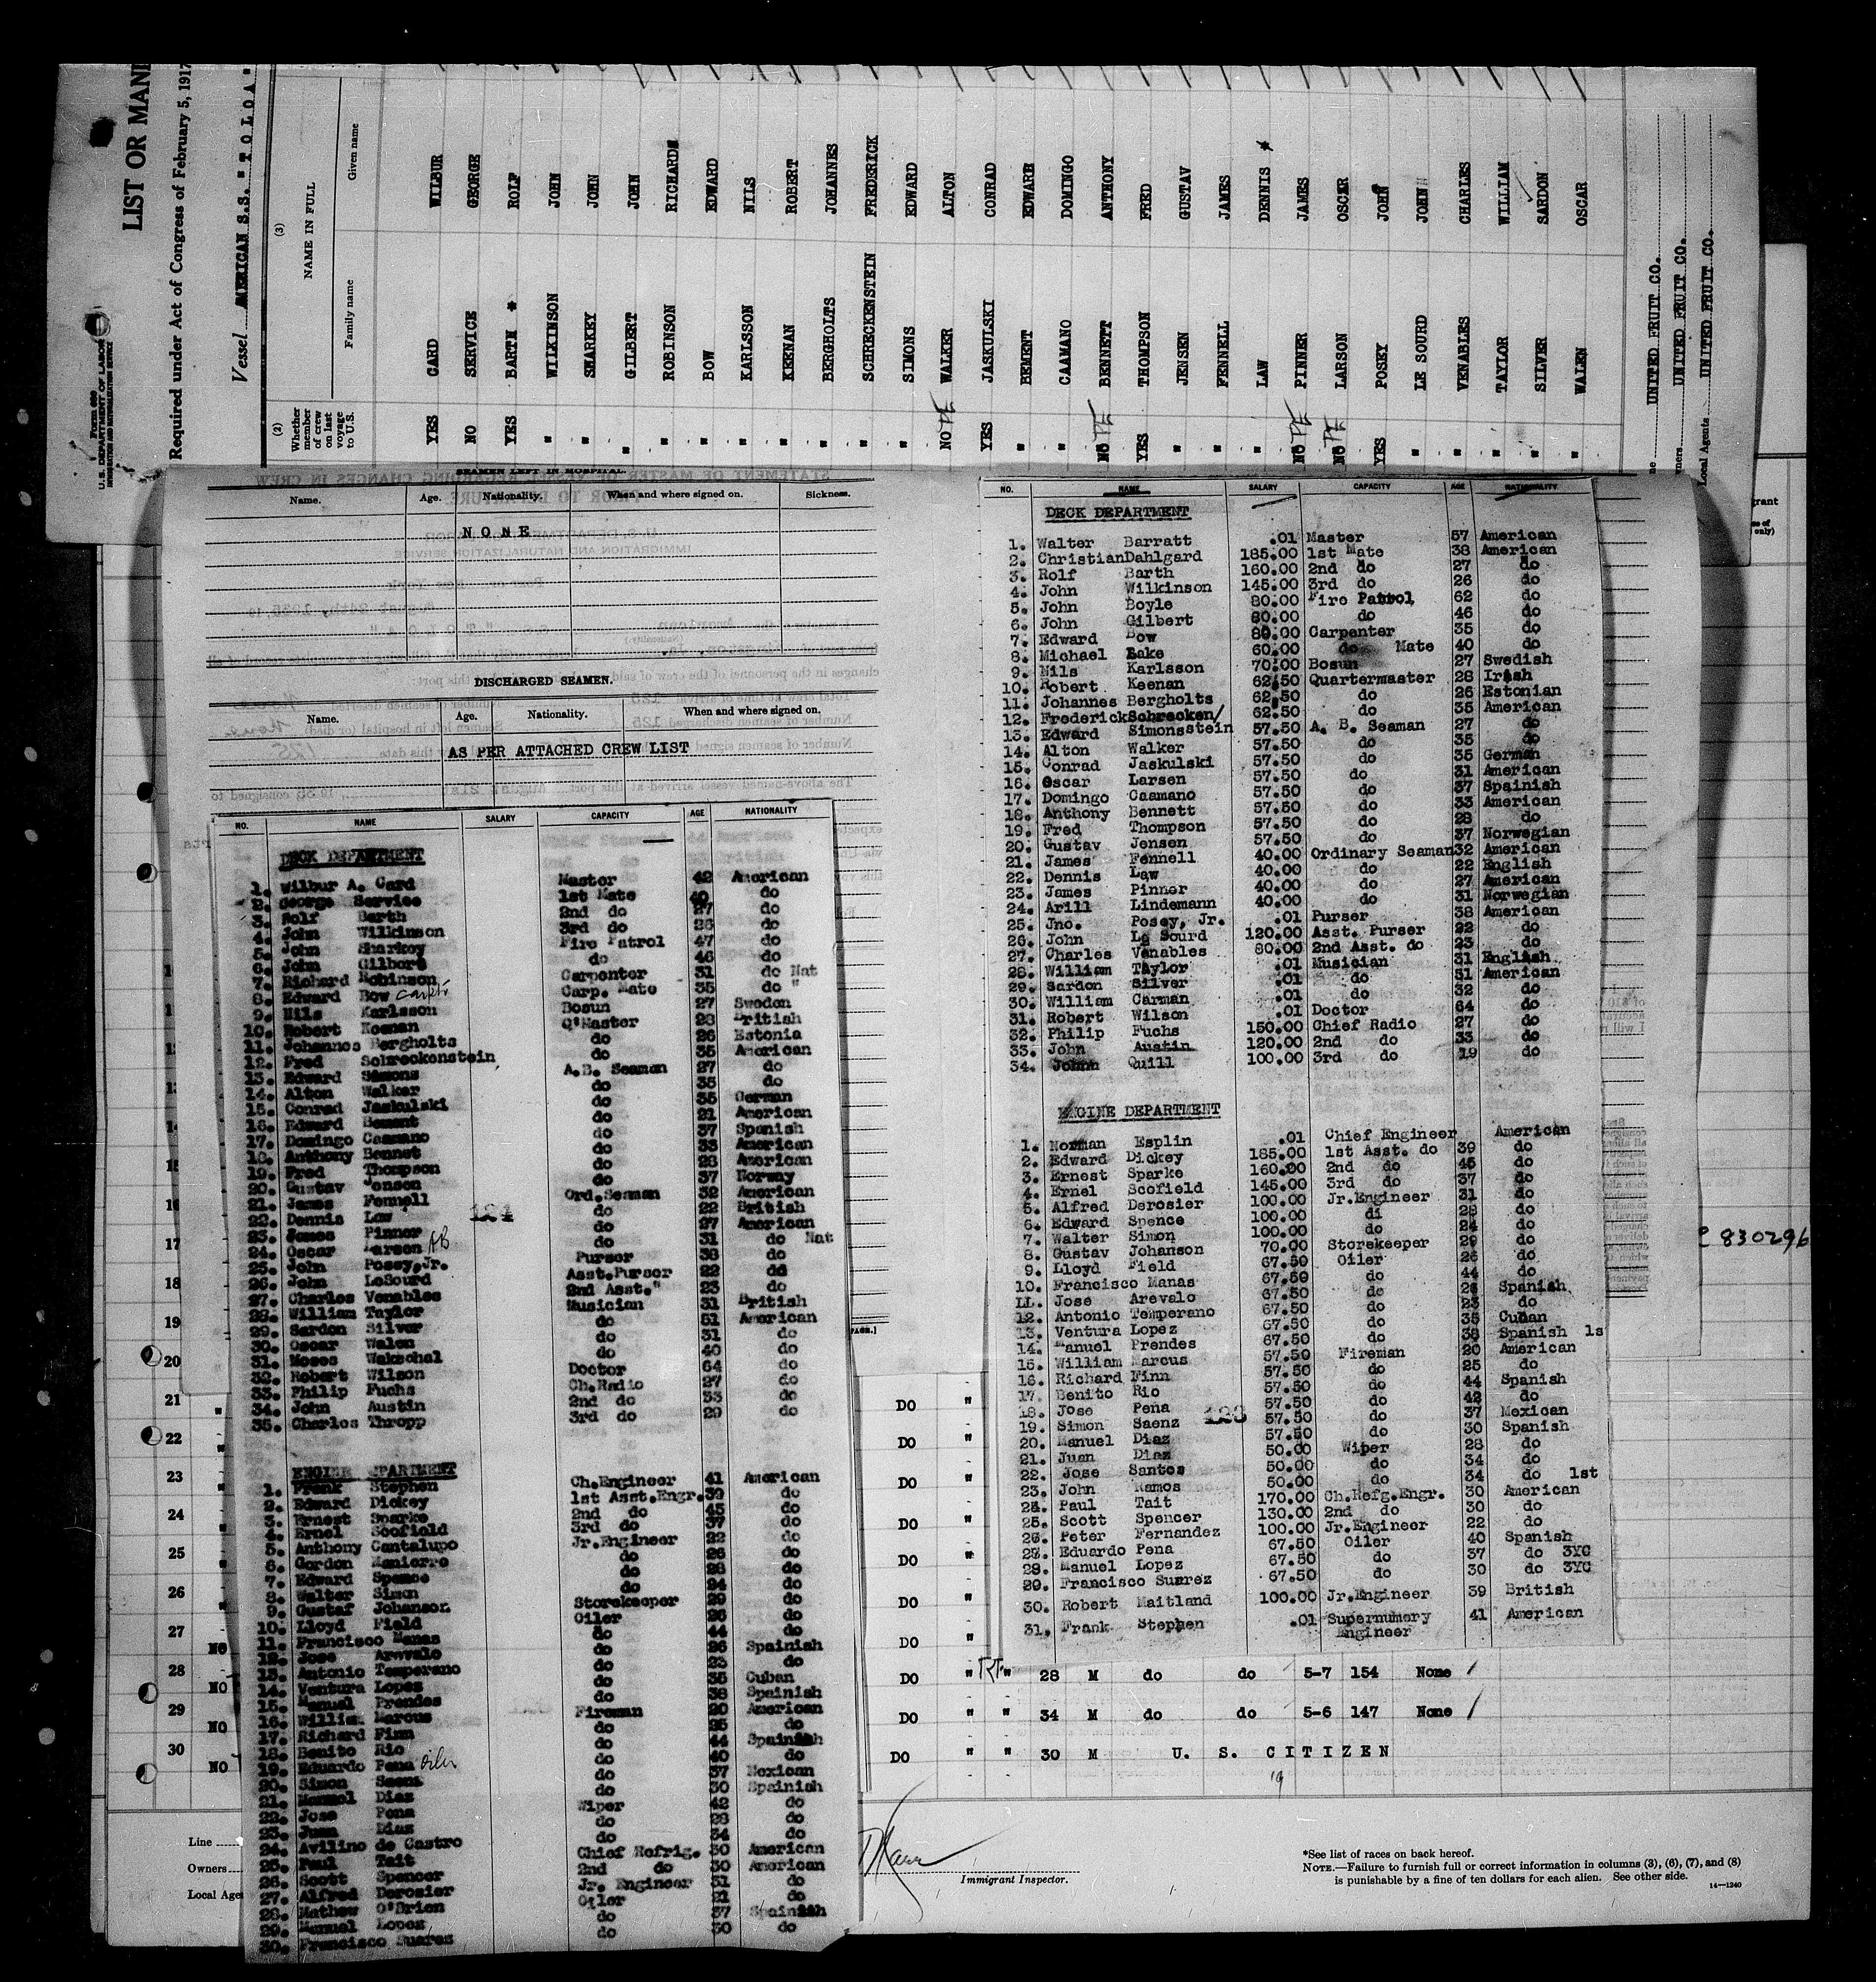 LIST OR MANI
Required under Act of Congress of February 5, 1917
Vessel AMERICAN S.S. "TOLOA"
FORM 680
U. S. DEPARTMENT OF LABOR
IMMIGRATION AND NATURALIZATION SERVICE
(2) (3)
Whether member of crew on last voyage to U.S.
NAME IN FULL
Family name Given name
YES CARD WILBUR
NO SERVICE GEORGE
YES BARTH * ROLF
" WILKINSON JOHN
" SHARKEY JOHN
" GILBERT JOHN
" ROBINSON RICHARD
" BOW EDWARD
" KARLSSON NILS
" KEENAN ROBERT
" BERGHOLTS JOHANNES
" SCHRECKENSTEIN FREDERICK
" SIMONS EDWARD
NO WALKER ALTON
YES JASKULSKI CONRAD
" BEMENT EDWARD
" CAAMANO DOMINGO
NO BENNETT ANTHONY
YES THOMPSON FRED
" JENSEN GUSTAV
" FENNELL JAMES
" LAW DENNIS *
NO PINNER JAMES
NO LARSON OSCAR
YES POSEY JOHN
" LE SOURD JOHN
" VENABLES CHARLES
" TAYLOR WILLIAM
" SILVER SARDON
" WALEN OSCAR
UNITED FRUIT CO.
UNITED FRUIT CO.
Local Agents UNITED FRUIT CO.
SEAMEN LEFT IN HOSPITAL.
Name. Age. Nationality. When and where signed on. Sickness.
NONE
DISCHARGED SEAMEN.
Name. Age. Nationality. When and where signed on.
AS PER ATTACHED CREW LIST
NO. NAME SALARY CAPACITY AGE NATIONALITY
DECK DEPARTMENT
1. Wilbur A. Card Master 42 American
2. George Service 1st Mate 40 do
3. Rolf Barth 2nd do 27 do
4. John Wilkinson 3rd do 26 do
5. John Sharkey Fire Patrol 47 do
6. John Gilbert do 46 do
7. Richard Robinson Carpenter 31 do Nat
8. Edward Bow Carp. Mate 35 do "
9. Nils Karlsson Bosun 27 Sweden
10. Robert Keenan Q'Master 28 British
11. Johannes Bergholts do 26 Estonia
12. Fred Schreckenstein do 35 American
13. Edward Simons A.B. Seaman 27 do
14. Alton Walker do 35 do
15. Conrad Jaskulski do 35 German
16. Edward Bement do 21 American
17. Domingo Caamano do 37 Spanish
18. Anthony Bennet do 33 American
19. Fred Thompson do 28 American
20. Gustav Jensen do 37 Norway
21. James Fennell Ord.Seaman 32 American
22. Dennis Law do 22 British
23. James Pinner do 27 American
24. Oscar Larson AB do 31 do Nat
25. John Posey,Jr. Purser 38 do
26. John LeSourd Asst.Purser 22 do
27. Charles Venables 2nd Asst." 23 do
28. William Taylor Musician 31 British
29. Sardon Silver do 51 American
30. Oscar Walen do 31 do
31. Moses do 40 do
32. Robert Wilson Doctor 64 do
33. Philip Fuchs Ch.Radio 27 do
34. John Austin 2nd do 33 do
35. Charles Thropp 3rd do 29 do
ENGINE DEPARTMENT
1. Frank Stephen Ch.Engineer 41 American
2. Edward Dickey 1st Asst.Engr. 39 do
3. Ernest Sparke 2nd do 45 do
4. Ernel Scofield 3rd do 37 do
5. Anthony Cantalupo Jr.Engineer 22 do
6. Gordon Manierre do 26 do
7. Edward Spence do 28 do
8. Walter Simon do 24 do
9. Gustaf Johanson Storekeeper 29 do
10. Lloyd Field Oiler 26 do
11. Francisco Manas do 44 do
12. Jose Arevalo do 26 Spainish
13. Antonio Temperano do 23 do
14. Ventura Lopes do 35 Cuban
15. Manuel Prendes do 38 Spainish
16. William Marcus Fireman 20 American
17. Richard Finn do 25 do
18. Benito Rio do 44 Spainish
19. Eduardo Pena oiler do 40 do
20. Simon Saenz do 37 Mexican
21. Manuel Diaz do 30 Spainish
22. Jose Pena Wiper 42 do
23. Juan Diaz do 28 do
24. Avilino de Castro do 34 do
25. Paul Tait Chief Refrig. 30 American
26. Scott Spencer 2nd do 30 American
27. Alfred Derosier Jr. Engineer 31 do
28. Mathew O'Brien Oiler 21 do
29. Manuel Lopez do 37 Spainish
30. Francisco Suarez do 30 do
NO. NAME SALARY CAPACITY AGE NATIONALITY
DECK DEPARTMENT
1. Walter Barratt .01 Master 57 American
2. Christian Dahlgard 185.00 1st Mate 38 American
3. Rolf Barth 160.00 2nd do 27 do
4. John Wilkinson 145.00 3rd do 26 do
5. John Boyle 80.00 Fire Patrol 62 do
6. John Gilbert 80.00 do 46 do
7. Edward Bow 80.00 Carpenter 35 do
8. Michael Bake 60.00 do Mate 40 do
9. Nils Karlsson 70.00 Bosun 27 Swedish
10. Robert Keenan 62.50 Quartermaster 28 Irish
11. Johannes Bergholts 62.50 do 26 Estonian
12. Frederick Schrecken/stein 62.50 do 35 American
13. Edward Simons 57.50 A. B. Seaman 27 do
14. Alton Walker 57.50 do 35 do
15. Conrad Jaskulski 57.50 do 35 German
16. Oscar Larsen 57.50 do 31 American
17. Domingo Caamano 57.50 do 37 Spainish
18. Anthony Bennett 57.50 do 33 American
19. Fred Thompson 57.50 do 28 do
20. Gustav Jensen 57.50 do 37 Norwegian
21. James Fennell 40.00 Ordinary Seaman 32 American
22. Dennis Law 40.00 do 22 English
23. James Pinner 40.00 do 27 American
24. Arill Lindemann 40.00 do 31 Norwegian
25. Jno. Posey, Jr. .01 Purser 38 American
26. John Le Sourd 120.00 Asst. Purser 22 do
27. Charles Venables 80.00 2nd Asst. do 23 do
28. William Taylor .01 Musician 31 English
29. Sardon Silver .01 do 51 American
30. William Carman .01 do 32 do
31. Robert Wilson .01 Doctor 64 do
32. Philip Fuchs 150.00 Chief Radio 27 do
33. John Austin 120.00 2nd do 33 do
34. John Quill 100.00 3rd do 19 do
ENGINE DEPARTMENT
1. Norman Esplin .01 Chief Engineer American
2. Edward Dickey 185.00 1st Asst. do 39 do
3. Ernest Sparke 160.00 2nd do 45 do
4. Ernel Scofield 145.00 3rd do 37 do
5. Alfred Derosier 100.00 Jr.Engineer 31 do
6. Edward Spence 100.00 di 28 do
7. Walter Simon 100.00 do 24 do
8. Gustav Johanson 70.00 Storekeeper 29 do
9. Lloyd Field 67.50 Oiler 26 do
10. Francisco Manas 67.50 do 44 do
11. Jose Arevalo 67.50 do 26 Spanish
12. Antonio Temperano 67.50 do 23 do
13. Ventura Lopez 67.50 do 35 Cuban
14. Manuel Prendes 67.50 do 38 Spanish 1s
15. William Marcus 57.50 Fireman 20 American
16. Richard Finn 57.50 do 25 do
17. Benito Rio 57.50 do 44 Spanish
18. Jose Pena 57.50 do 42 do
19. Simon Saenz 57.50 do 37 Mexican
20. Manuel Diaz 57.50 do 30 Spanish
21. Juan Diaz 50.00 Wiper 28 do
22. Jose Santos 50.00 do 34 do
23. John Ramos 50.00 do 34 do 1st
24. Paul Tait 170.00 Ch.Refg.Engr. 30 American
25. Scott Spencer 130.00 2nd do 30 do
26. Peter Fernandez 100.00 Jr.Engineer 22 do
27. Eduardo Pena 67.50 Oiler 40 Spanish
28. Manuel Lopez 67.50 do 37 do 3YC
29. Francisco Suarez 67.50 do 30 do 3YC
30. Robert Maitland 100.00 Jr.Engineer 39 British
31. Frank Stephen .01 Supernumary Engineer 41 American
C 830296
17
18
19
20
21 DO "
22 DO "
23 DO "
24 DO "
25 DO "
26 DO "
27 NO DO "
28 NO DO " " 28 M do do 5-7 154 None
29 NO DO " " 34 M do do 5-6 147 None
30 NO DO " " 30 M U. S. CITIZEN
Line
Owners
Local Age
Immigrant Inspector.
*See list of races on back hereof.
NOTE.—Failure to furnish full or correct information in columns (3), (6), (7), and (8)
is punishable by a fine of ten dollars for each alien. See other side.
14—1240